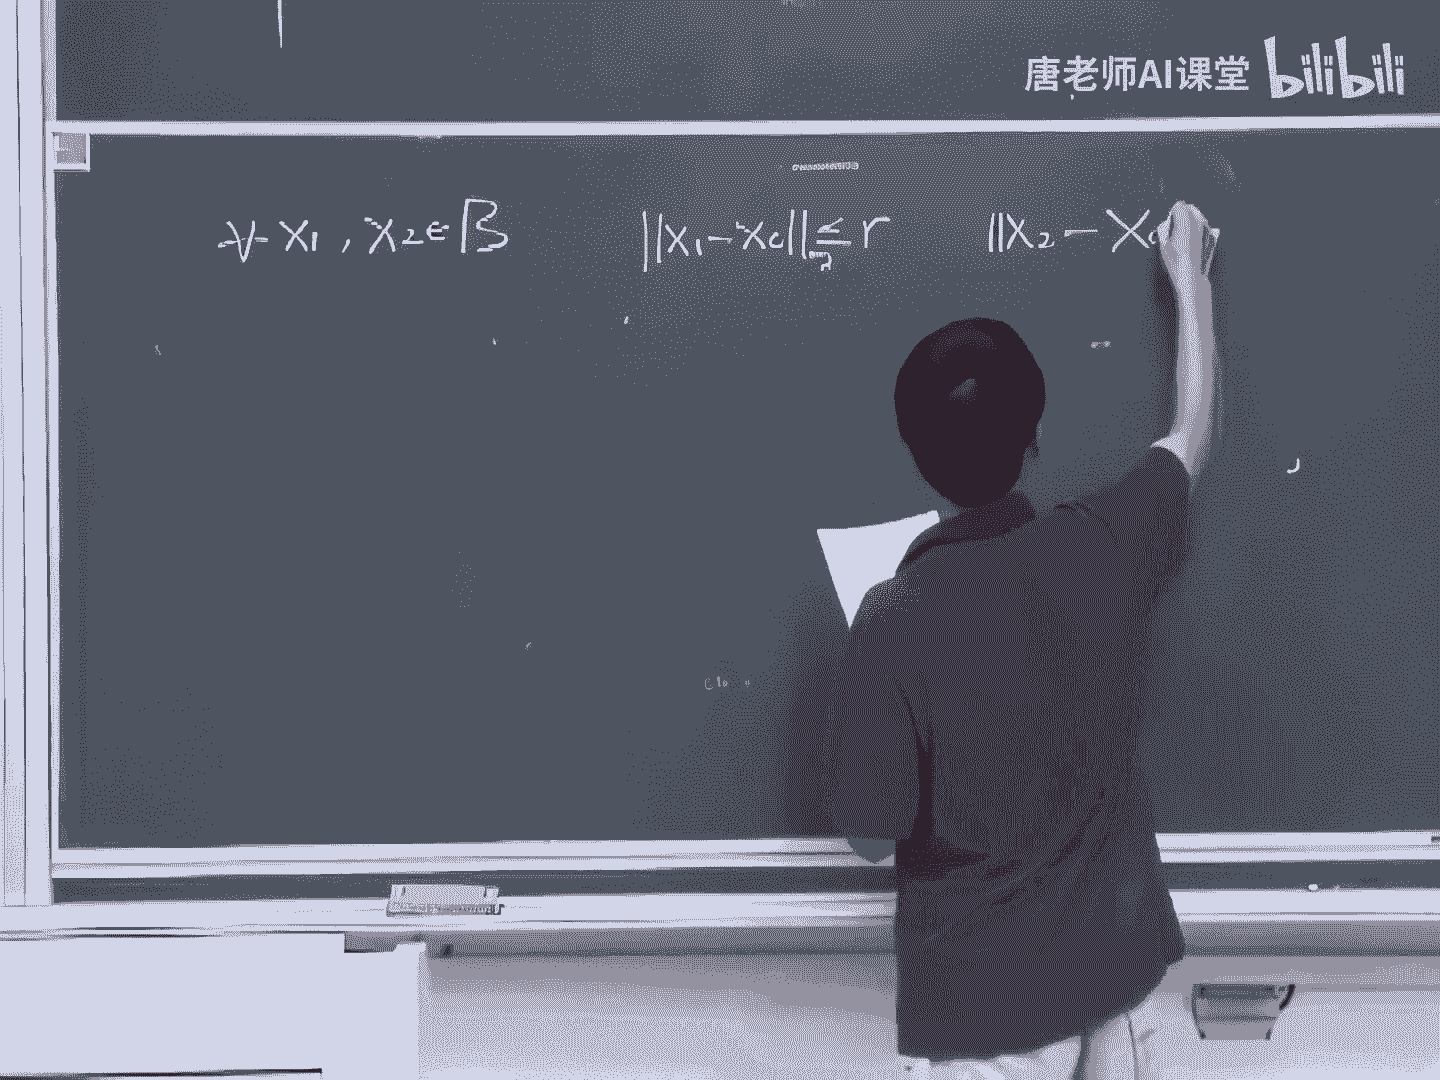 唐老师AI课堂 bilibili
∀ x₁, x₂ ∈ B ||x₁ - x_c||₂ ≤ r ||x₂ - x_c